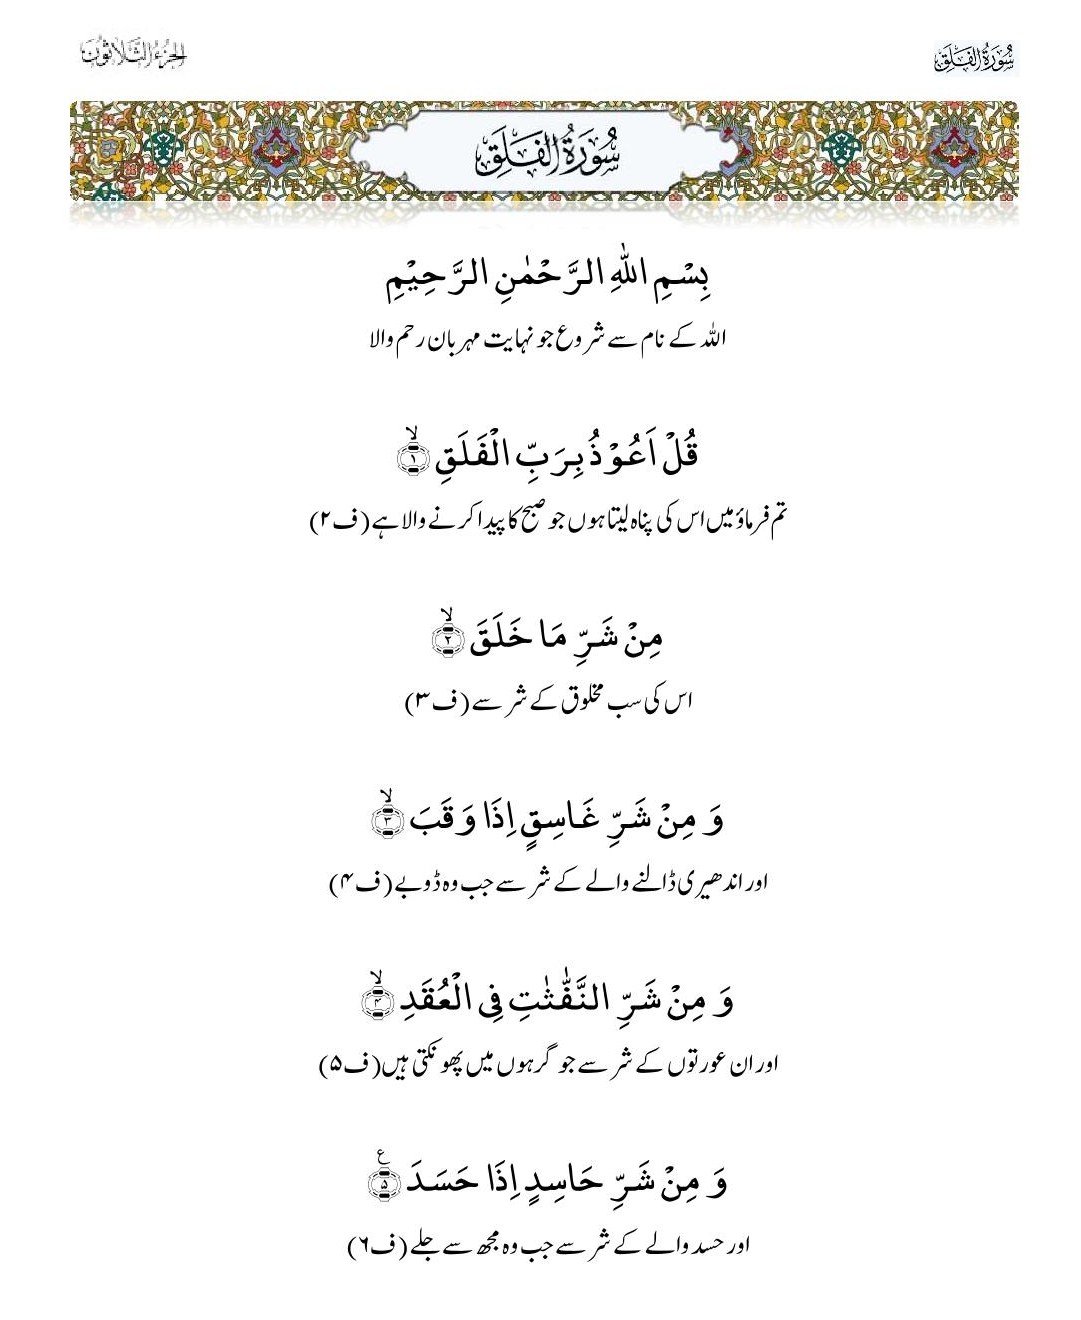 سُوْرَةُ الْفَلَق
الجزء الثلاثون
سُوْرَةُ الْفَلَقِ
بِسْمِ اللّٰهِ الرَّحْمٰنِ الرَّحِیْمِ
اللہ کے نام سے شروع جو نہایت مہربان رحم والا
قُلْ اَعُوْذُ بِرَبِّ الْفَلَقِۙ(۱)
تم فرماؤ میں اس کی پناہ لیتا ہوں جو صبح کا پیدا کرنے والا ہے (ف۲)
مِنْ شَرِّ مَا خَلَقَۙ(۲)
اس کی سب مخلوق کے شر سے (ف۳)
وَ مِنْ شَرِّ غَاسِقٍ اِذَا وَقَبَۙ(۳)
اور اندھیری ڈالنے والے کے شر سے جب وہ ڈوبے (ف۴)
وَ مِنْ شَرِّ النَّفّٰثٰتِ فِی الْعُقَدِۙ(۴)
اور ان عورتوں کے شر سے جو گرہوں میں پھونکتی ہیں (ف۵)
وَ مِنْ شَرِّ حَاسِدٍ اِذَا حَسَدَ۠(۵)
اور حسد والے کے شر سے جب وہ مجھ سے جلے (ف۶)